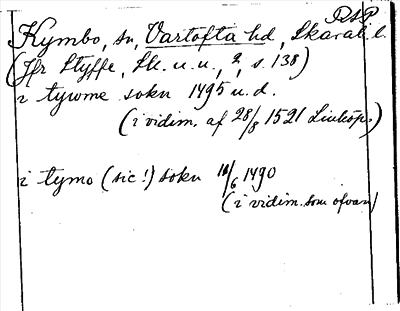 RAP
Kymbo, sn, Vartofta hd, Skarab. l.
(Jfr Styffe, Sk. u. u., 2, s. 138)
i tywme sokn 1495 u. d.
(i vidim. af 28/8 1521 Linköp.)
i tymo (sic!) sokn 10/6 1490
(i vidim. som ofvan)